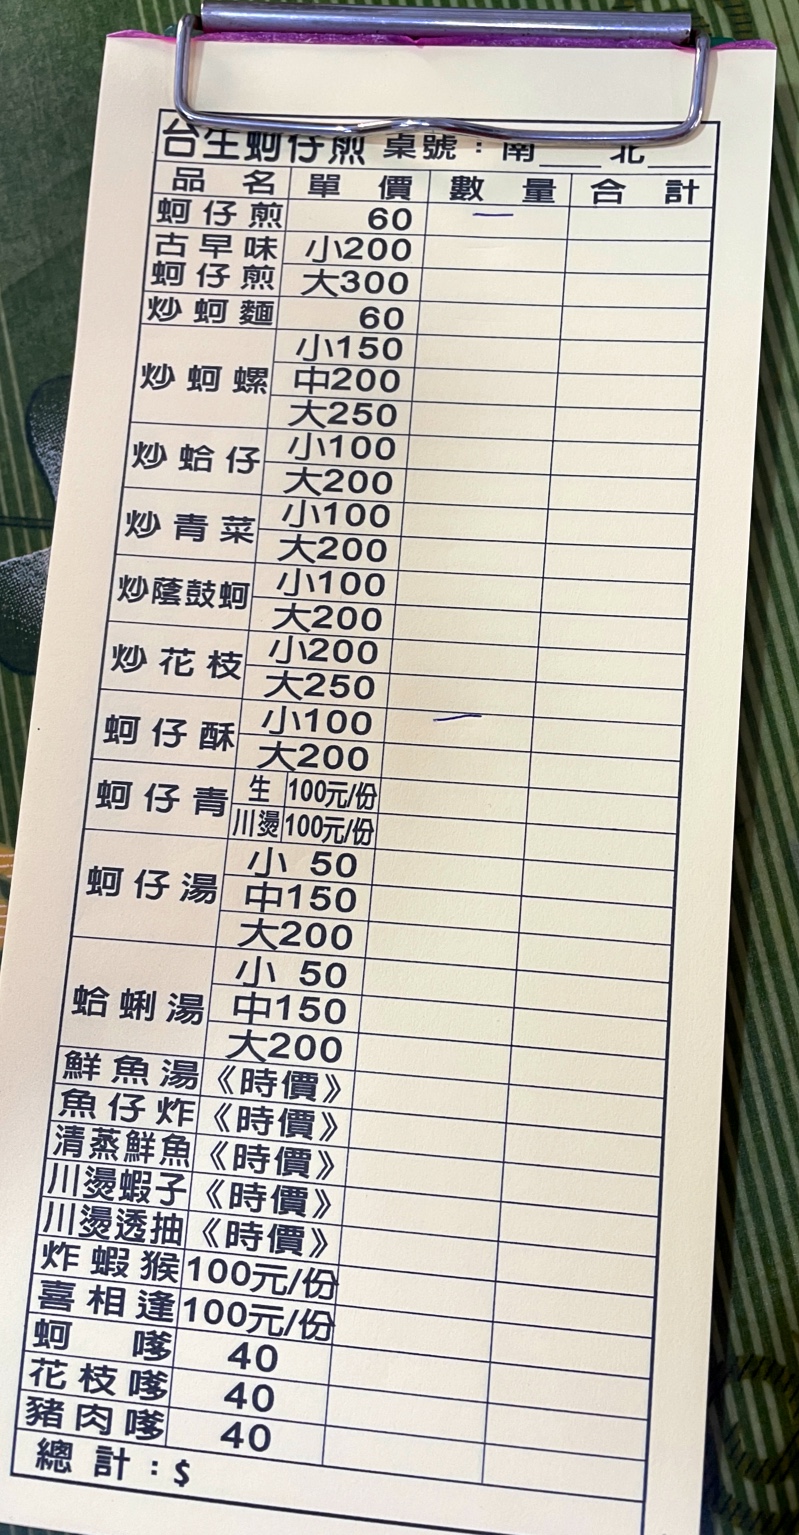 台生蚵仔煎 桌號：南____北____
品名 單價 數量 合計
蚵仔煎 60 一
古早味蚵仔煎 小200
大300
炒蚵麵 60
炒蚵螺 小150
中200
大250
炒蛤仔 小100
大200
炒青菜 小100
大200
炒蔭鼓蚵 小100
大200
炒花枝 小200
大250
蚵仔酥 小100 一
大200
蚵仔青 生 100元/份
川燙 100元/份
蚵仔湯 小 50
中150
大200
蛤蜊湯 小 50
中150
大200
鮮魚湯 《時價》
魚仔炸 《時價》
清蒸鮮魚 《時價》
川燙蝦子 《時價》
川燙透抽 《時價》
炸蝦猴 100元/份
喜相逢 100元/份
蚵嗲 40
花枝嗲 40
豬肉嗲 40
總計：$